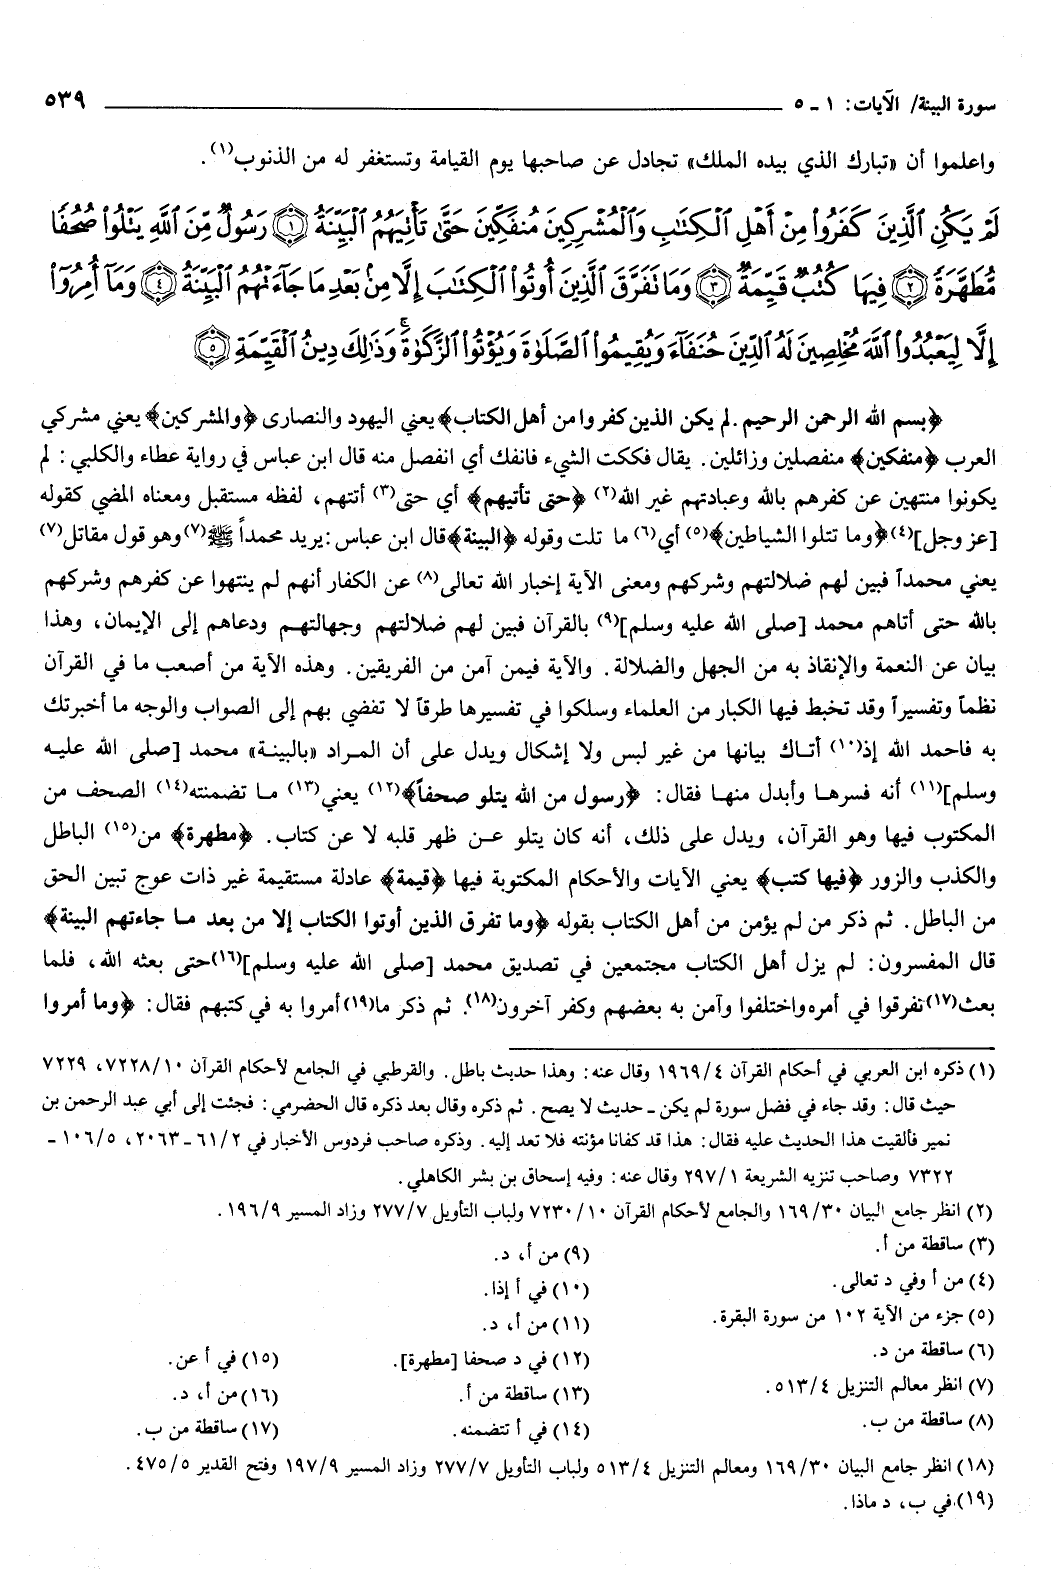 سورة البينة/ الآيات: ١ ـ ٥ ٥٣٩
واعلموا أن «تبارك الذي بيده الملك» تجادل عن صاحبها يوم القيامة وتستغفر له من الذنوب(١).
لَمْ يَكُنِ ٱلَّذِينَ كَفَرُوا۟ مِنْ أَهْلِ ٱلْكِتَٰبِ وَٱلْمُشْرِكِينَ مُنفَكِّينَ حَتَّىٰ تَأْتِيَهُمُ ٱلْبَيِّنَةُ ﴿١﴾ رَسُولٌ مِّنَ ٱللَّهِ يَتْلُوا۟ صُحُفًا
مُّطَهَّرَةً ﴿٢﴾ فِيهَا كُتُبٌ قَيِّمَةٌ ﴿٣﴾ وَمَا تَفَرَّقَ ٱلَّذِينَ أُوتُوا۟ ٱلْكِتَٰبَ إِلَّا مِنۢ بَعْدِ مَا جَآءَتْهُمُ ٱلْبَيِّنَةُ ﴿٤﴾ وَمَآ أُمِرُوٓا۟
إِلَّا لِيَعْبُدُوا۟ ٱللَّهَ مُخْلِصِينَ لَهُ ٱلدِّينَ حُنَفَآءَ وَيُقِيمُوا۟ ٱلصَّلَوٰةَ وَيُؤْتُوا۟ ٱلزَّكَوٰةَ ۚ وَذَٰلِكَ دِينُ ٱلْقَيِّمَةِ ﴿٥﴾
﴿بسم الله الرحمن الرحيم. لم يكن الذين كفروا من أهل الكتاب﴾ يعني اليهود والنصارى ﴿والمشركين﴾ يعني مشركي
العرب ﴿منفكين﴾ منفصلين وزائلين. يقال فككت الشيء فانفك أي انفصل منه قال ابن عباس في رواية عطاء والكلبي: لم
يكونوا منتهين عن كفرهم بالله وعبادتهم غير الله(٢) ﴿حتى تأتيهم﴾ أي حتى(٣) أتتهم، لفظه مستقبل ومعناه المضي كقوله
[عز وجل](٤) ﴿وما تتلوا الشياطين﴾(٥) أي(٦) ما تلت وقوله ﴿البينة﴾ قال ابن عباس: يريد محمداً ﷺ(٧) وهو قول مقاتل(٧)
يعني محمداً فبين لهم ضلالتهم وشركهم ومعنى الآية إخبار الله تعالى(٨) عن الكفار أنهم لم ينتهوا عن كفرهم وشركهم
بالله حتى أتاهم محمد [صلى الله عليه وسلم](٩) بالقرآن فبين لهم ضلالتهم وجهالتهم ودعاهم إلى الإيمان، وهذا
بيان عن النعمة والإنقاذ به من الجهل والضلالة. والآية فيمن آمن من الفريقين. وهذه الآية من أصعب ما في القرآن
نظماً وتفسيراً وقد تخبط فيها الكبار من العلماء وسلكوا في تفسيرها طرقاً لا تفضي بهم إلى الصواب والوجه ما أخبرتك
به فاحمد الله إذ(١٠) أتاك بيانها من غير لبس ولا إشكال ويدل على أن المراد «بالبينة» محمد [صلى الله عليه
وسلم](١١) أنه فسرها وأبدل منها فقال: ﴿رسول من الله يتلو صحفاً﴾(١٢) يعني(١٣) ما تضمنته(١٤) الصحف من
المكتوب فيها وهو القرآن، ويدل على ذلك، أنه كان يتلو عن ظهر قلبه لا عن كتاب. ﴿مطهرة﴾ من(١٥) الباطل
والكذب والزور ﴿فيها كتب﴾ يعني الآيات والأحكام المكتوبة فيها ﴿قيمة﴾ عادلة مستقيمة غير ذات عوج تبين الحق
من الباطل. ثم ذكر من لم يؤمن من أهل الكتاب بقوله ﴿وما تفرق الذين أوتوا الكتاب إلا من بعد ما جاءتهم البينة﴾
قال المفسرون: لم يزل أهل الكتاب مجتمعين في تصديق محمد [صلى الله عليه وسلم](١٦) حتى بعثه الله، فلما
بعث(١٧) تفرقوا في أمره واختلفوا وآمن به بعضهم وكفر آخرون(١٨). ثم ذكر ما(١٩) أمروا به في كتبهم فقال: ﴿وما أمروا
(١) ذكره ابن العربي في أحكام القرآن ١٩٦٩/٤ وقال عنه: وهذا حديث باطل. والقرطبي في الجامع لأحكام القرآن ٧٢٢٨/١٠، ٧٢٢٩
حيث قال: وقد جاء في فضل سورة لم يكن ـ حديث لا يصح. ثم ذكره وقال بعد ذكره قال الحضرمي: فجئت إلى أبي عبد الرحمن بن
نمير فألقيت هذا الحديث عليه فقال: هذا قد كفانا مؤنته فلا تعد إليه. وذكره صاحب فردوس الأخبار في ٦١/٢ ـ ٢٠٦٣، ١٠٦/٥ ـ
٧٣٢٢ وصاحب تنزيه الشريعة ٢٩٧/١ وقال عنه: وفيه إسحاق بن بشر الكاهلي.
(٢) انظر جامع البيان ١٦٩/٣٠ والجامع لأحكام القرآن ٧٢٣٠/١٠ ولباب التأويل ٢٧٧/٧ وزاد المسير ١٩٦/٩.
(٣) ساقطة من أ.
(٤) من أ وفي د تعالى.
(٥) جزء من الآية ١٠٢ من سورة البقرة.
(٦) ساقطة من د.
(٧) انظر معالم التنزيل ٥١٣/٤.
(٨) ساقطة من ب.
(٩) من أ، د.
(١٠) في أ إذا.
(١١) من أ، د.
(١٢) في د صحفا [مطهرة].
(١٣) ساقطة من أ.
(١٤) في أ تتضمنه.
(١٥) في أ عن.
(١٦) من أ، د.
(١٧) ساقطة من ب.
(١٨) انظر جامع البيان ١٦٩/٣٠ ومعالم التنزيل ٥١٣/٤ ولباب التأويل ٢٧٧/٧ وزاد المسير ١٩٧/٩ وفتح القدير ٤٧٥/٥.
(١٩) في ب، د ماذا.